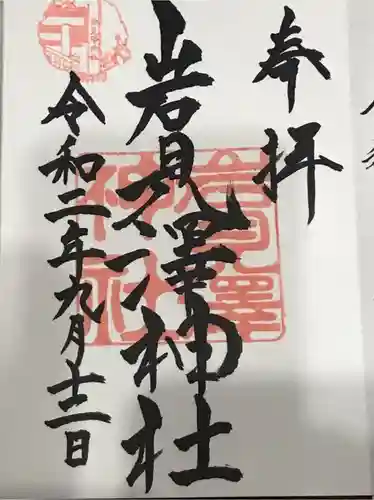 奉拝
岩見澤神社
令和二年九月十二日
岩見澤
神社